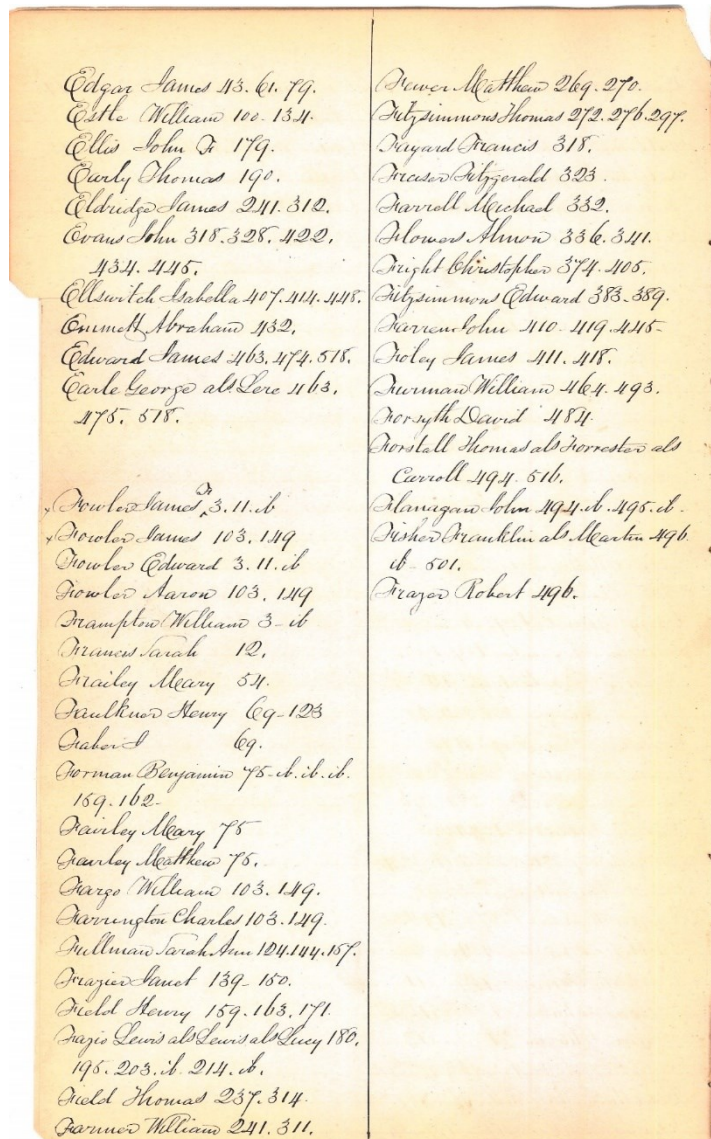 Edgar James 43. 61. 79.
Estle William 100. 134.
Ellis John Jr 179.
Early Thomas 190.
Eldridge James 241. 312.
Evans John 318. 328. 422.
434. 445.
Ellswitch Isabella 407. 414. 448.
Emmett Abraham 432.
Edward James 463. 474. 518.
Earle George als Lere 463.
475. 518.
x Fowler James Jr 3. 11. ib
x Fowler James 103. 149
Fowler Edward 3. 11. ib
Fowler Aaron 103. 149
Frampton William 3- ib
Francis Sarah 12.
Frailey Mary 54.
Faulknor Henry 69-123
Faber J 69.
Forman Benjamin 75- ib. ib. ib.
159. 162-
Fairley Mary 75
Fairley Matthew 75.
Fargo William 103. 149.
Farrington Charles 103. 149.
Fullman Sarah Ann 124. 144. 157.
Frazier Janet 139- 150.
Field Henry 159. 163. 171.
Fazio Lewis als Lewis als Lucy 180.
195. 203. ib. 214. ib.
Field Thomas 237. 314.
Farmer William 241. 311.
Fewer Matthew 269. 270.
Fitzsimmons Thomas 272. 276. 297.
Fayard Francis 318.
Fraser Fitzgerald 323.
Farrell Michael 332.
Flowers Almon 336. 341.
Fright Christopher 374. 405.
Fitzsimmons Edward 383-389.
Farren John 410- 419. 445-
Foley James 411. 418.
Furman William 464. 493.
Forsyth David 484.
Forstall Thomas als Forrester als
Carroll 494. 516.
Flanagan John 494. ib. 495. ib.
Fisher Franklin als Martin 496.
ib- 501.
Frazer Robert 496.